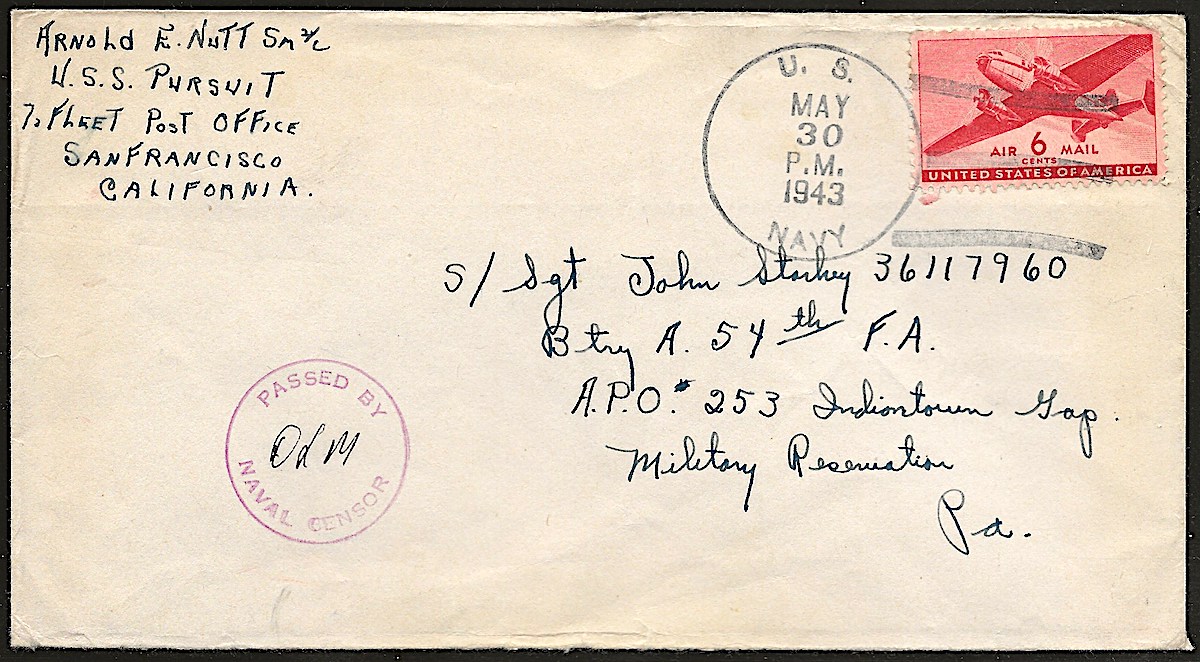 ARNOLD E. NUTT Sm 2/c
U.S.S. PURSUIT
℅ FLEET POST OFFICE
SANFRANCISCO
CALIFORNIA.
U. S.
MAY
30
P.M.
1943
NAVY
AIR 6 MAIL
CENTS
UNITED STATES OF AMERICA
S/Sgt John Starkey 36117960
Btry A. 54th F.A.
A.P.O. # 253 Indiantown Gap.
Military Reservation
Pa.
PASSED BY
OLM
NAVAL CENSOR